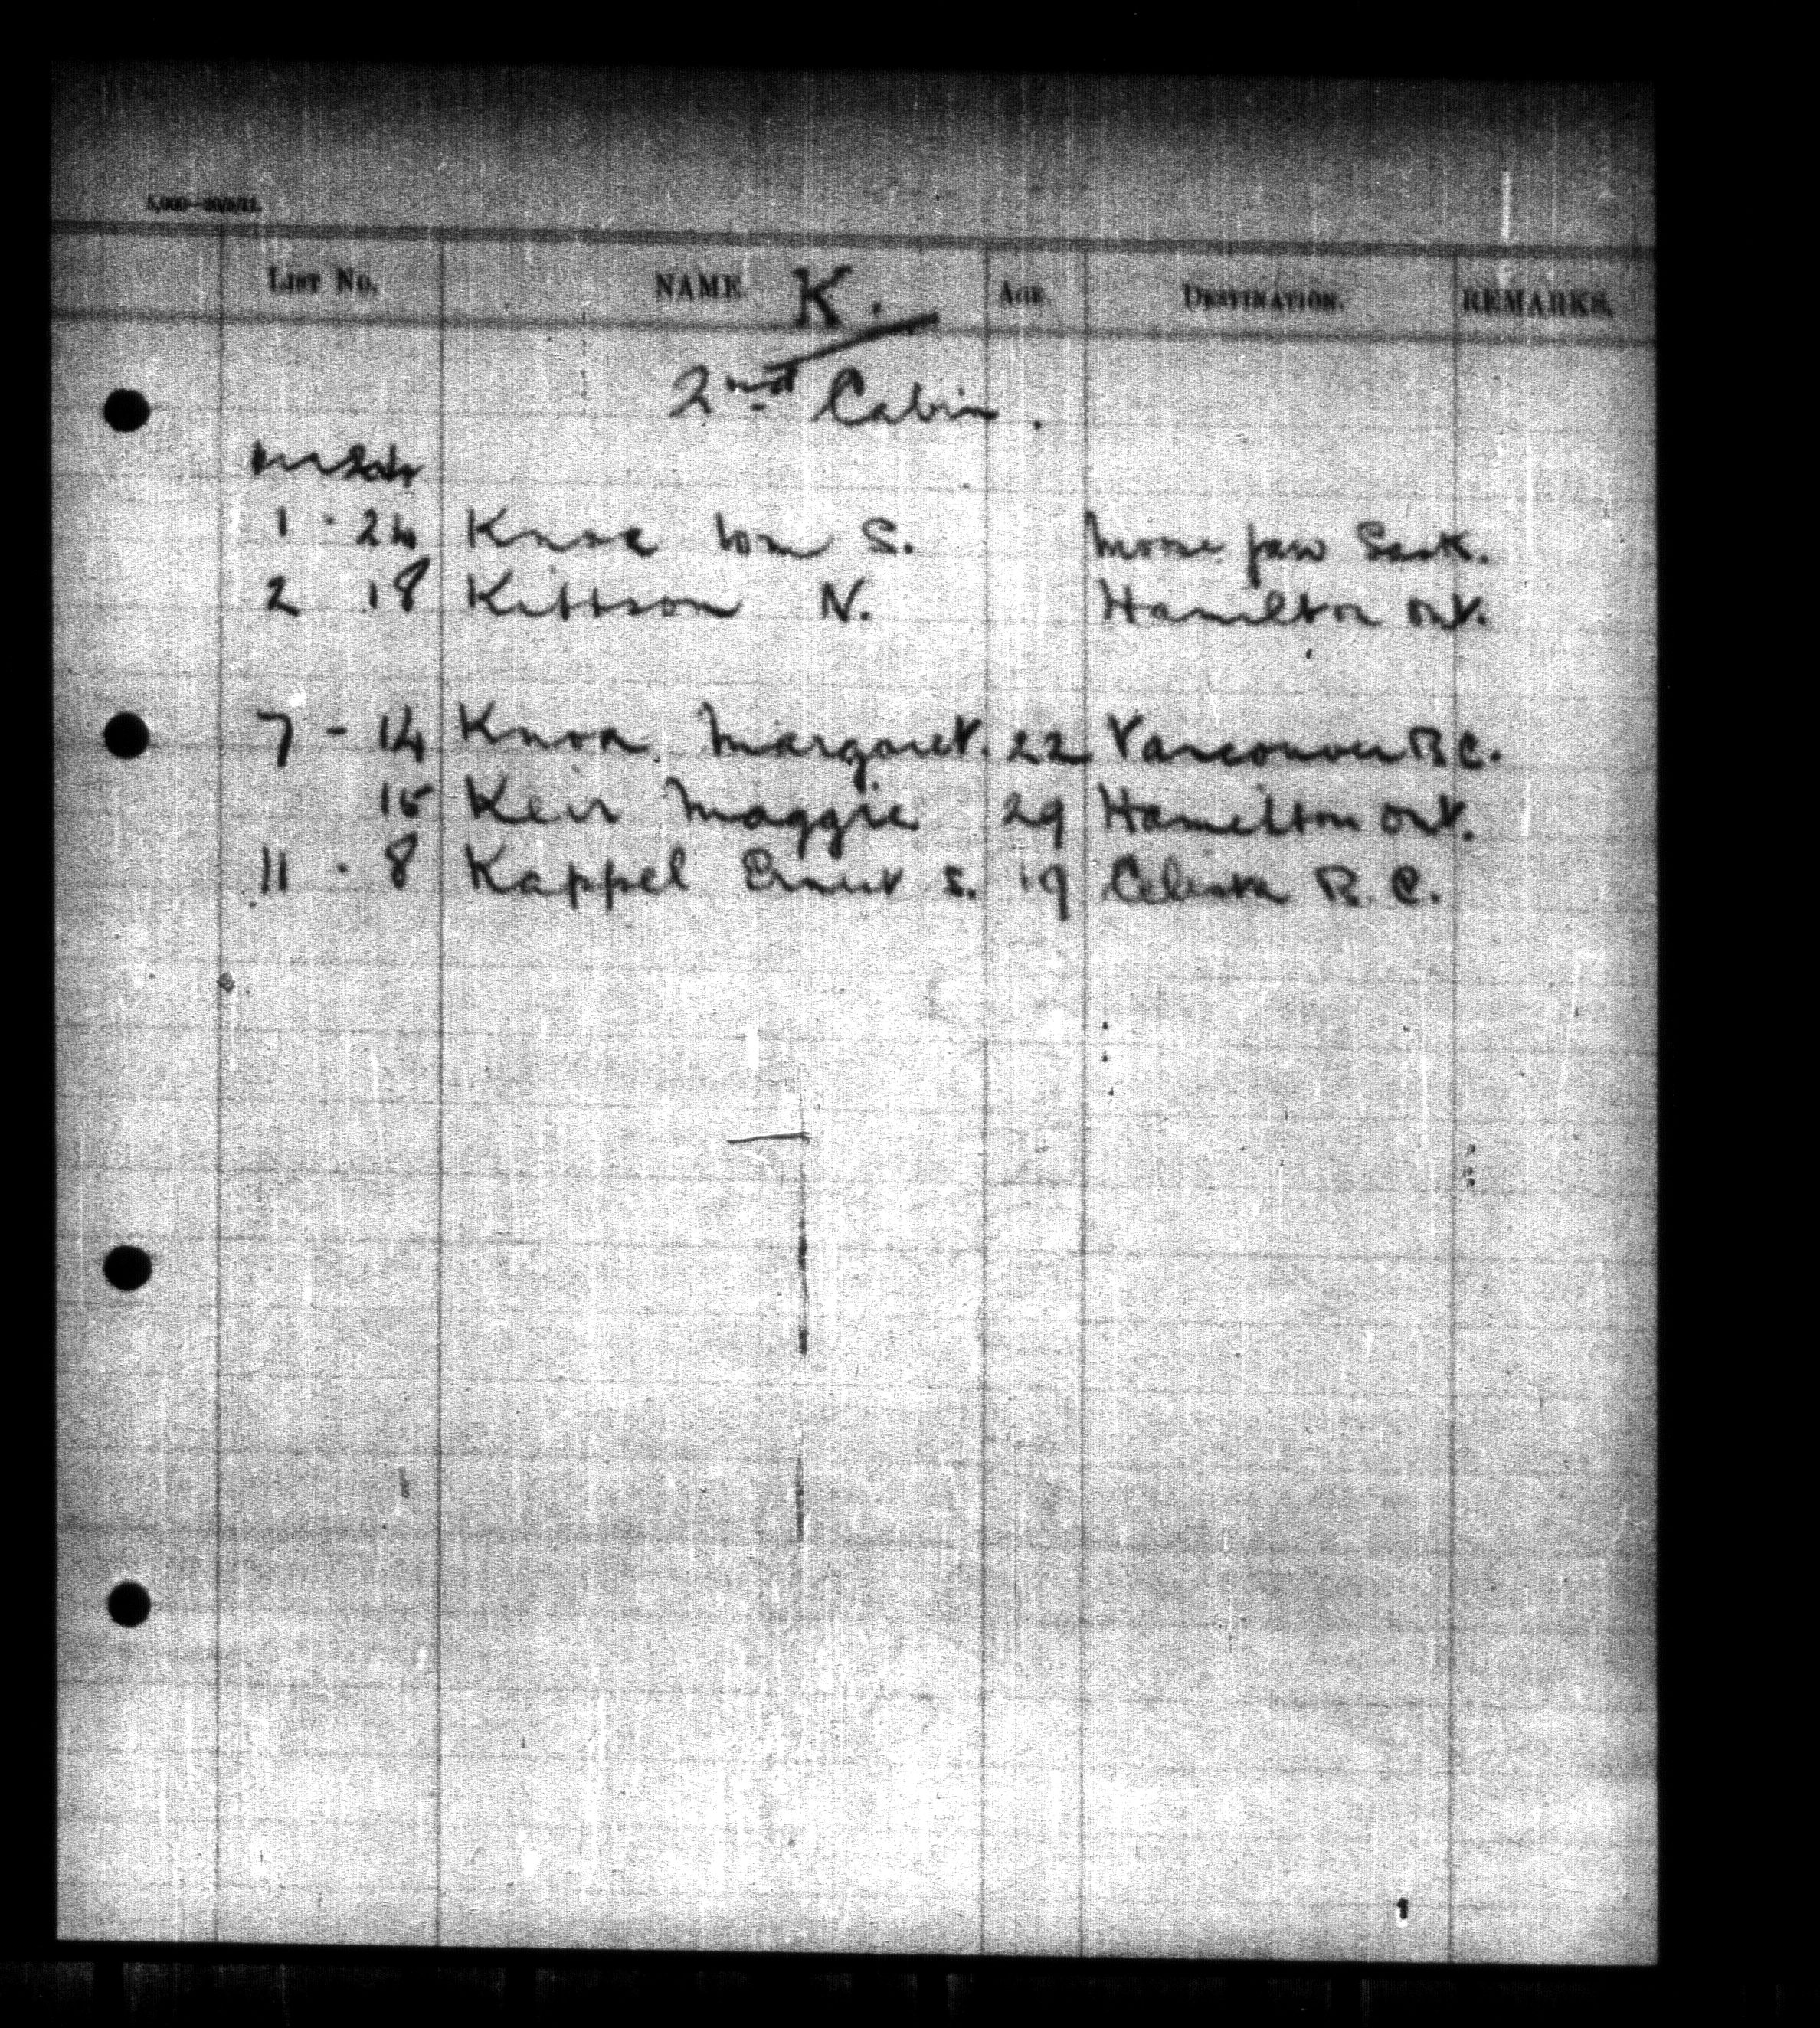 5,000—20/5/11.
LIST No. NAME K. AGE. DESTINATION. REMARKS.
2nd Cabin.
1 - 24 Knox Wm S. Moose Jaw Sask.
2 18 Kittson N. Hamilton Ont.
7 - 14 Knox Margaret. 22 Vancouver B.C.
15 Keir Maggie 29 Hamilton Ont.
11 - 8 Kappel Ernest S. 19 Celista B.C.